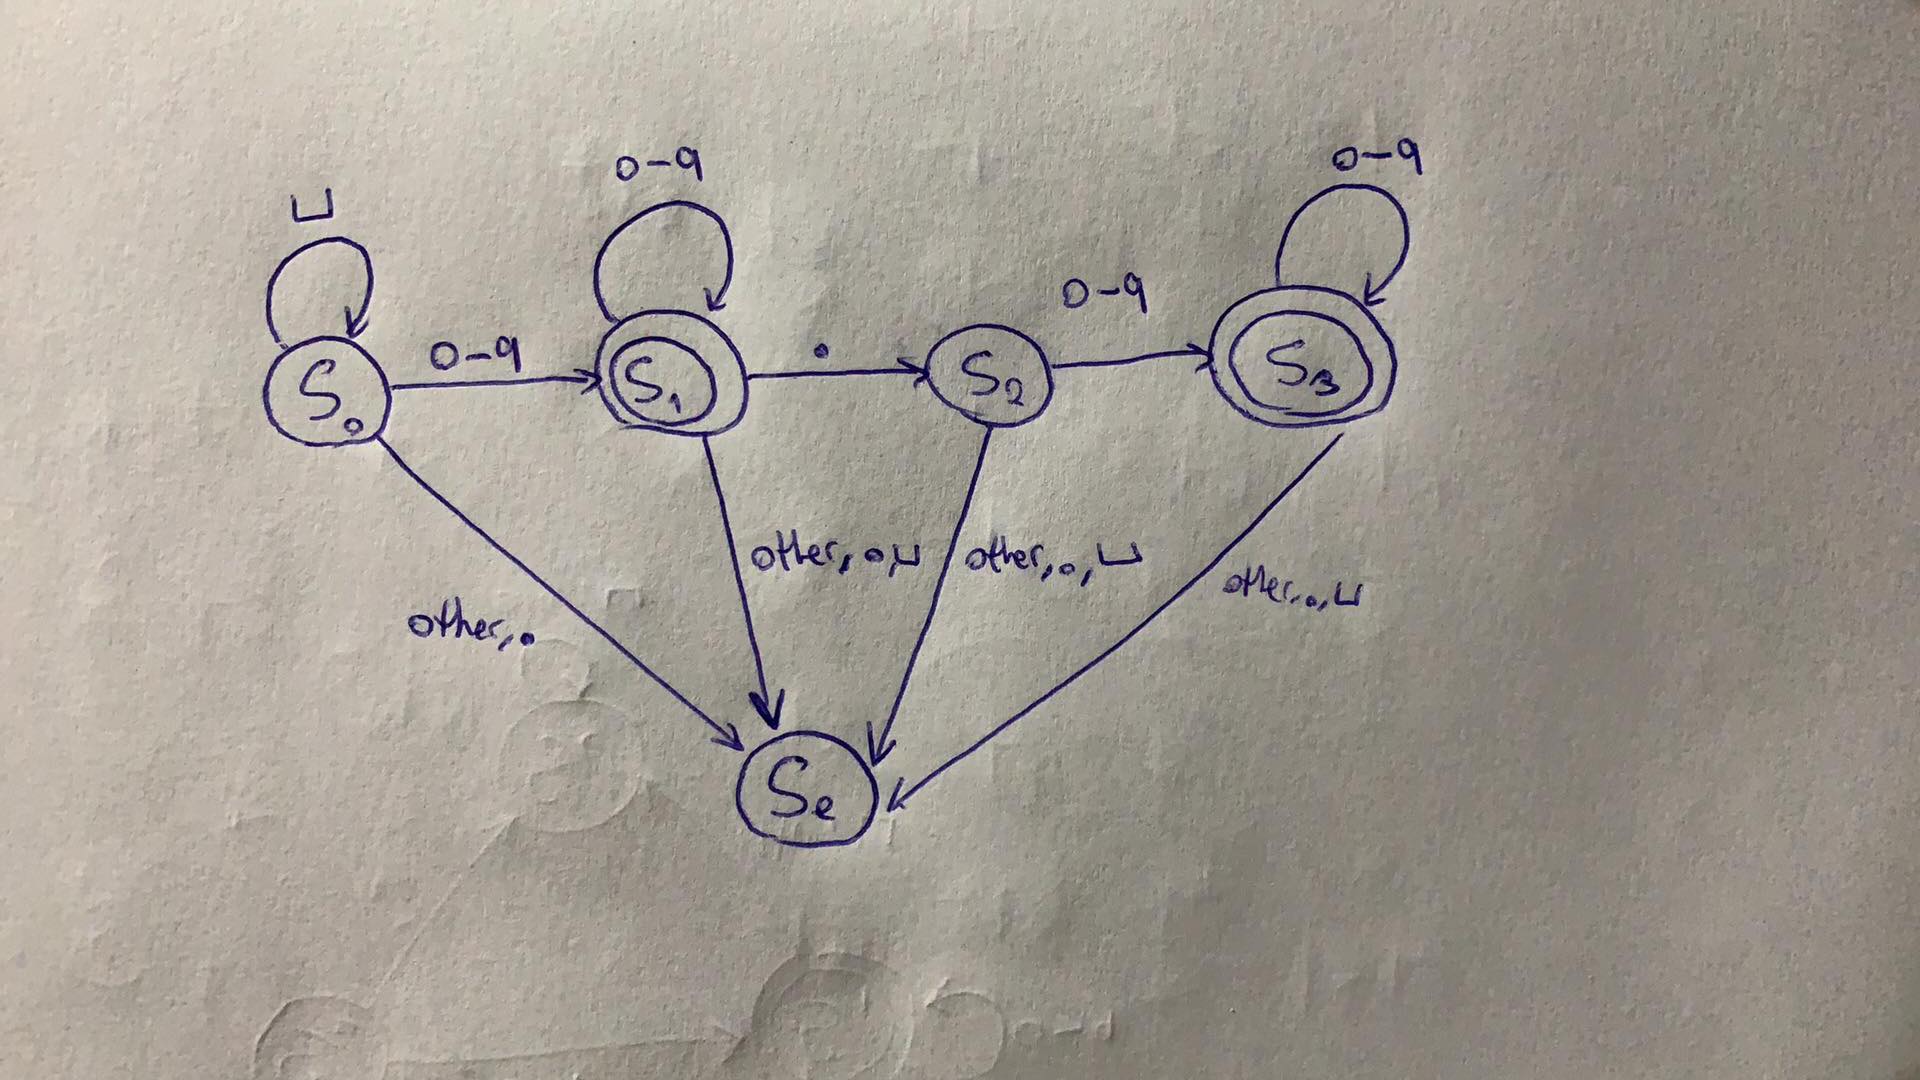 0-9
0-9
⊔
0-9
0-9
.
S₀
S₁
S₂
S₃
other, ., ⊔
other, ., ⊔
other, ., ⊔
other, .
Sₑ